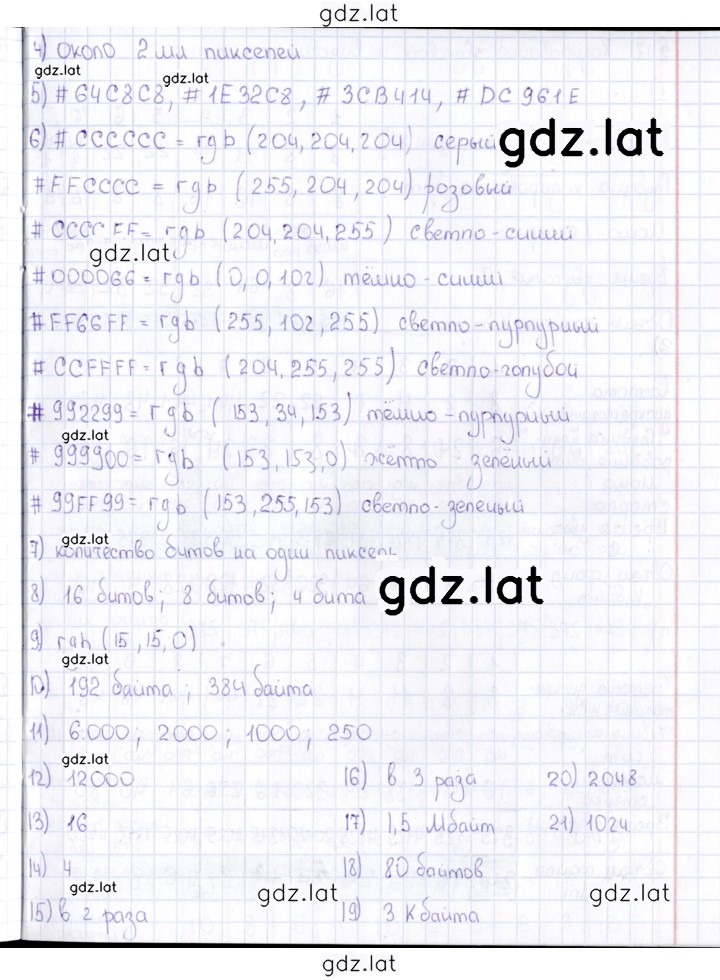 gdz.lat
4) около 2 мл пикселей
gdz.lat
gdz.lat
5) #64C8C8, #1E32C8, #3CB414, #DC961E
6) #CCCCCC = rgb (204,204,204) серый
gdz.lat
#FFCCCC = rgb (255,204,204) розовый
#CCCCFF = rgb (204,204,255) светло-синий
gdz.lat
#000066 = rgb (0,0,102) тёмно-синий
#FF66FF = rgb (255,102,255) светло-пурпурный
#CCFFFF = rgb (204,255,255) светло-голубой
#992299 = rgb (153,34,153) тёмно-пурпурный
gdz.lat
#999900 = rgb (153,153,0) жёлто-зелёный
#99FF99 = rgb (153,255,153) светло-зеленый
gdz.lat
7) количество битов на один пиксель
8) 16 битов; 8 битов; 4 бита
gdz.lat
9) rgb (15,15,0)
gdz.lat
10) 192 байта; 384 байта
11) 6.000; 2000; 1000; 250
gdz.lat
12) 12000 16) в 3 раза 20) 2048
13) 16 17) 1,5 Мбайт 21) 1024
14) 4 18) 80 байтов
gdz.lat gdz.lat gdz.lat
15) в 2 раза 19) 3 Кбайта
gdz.lat